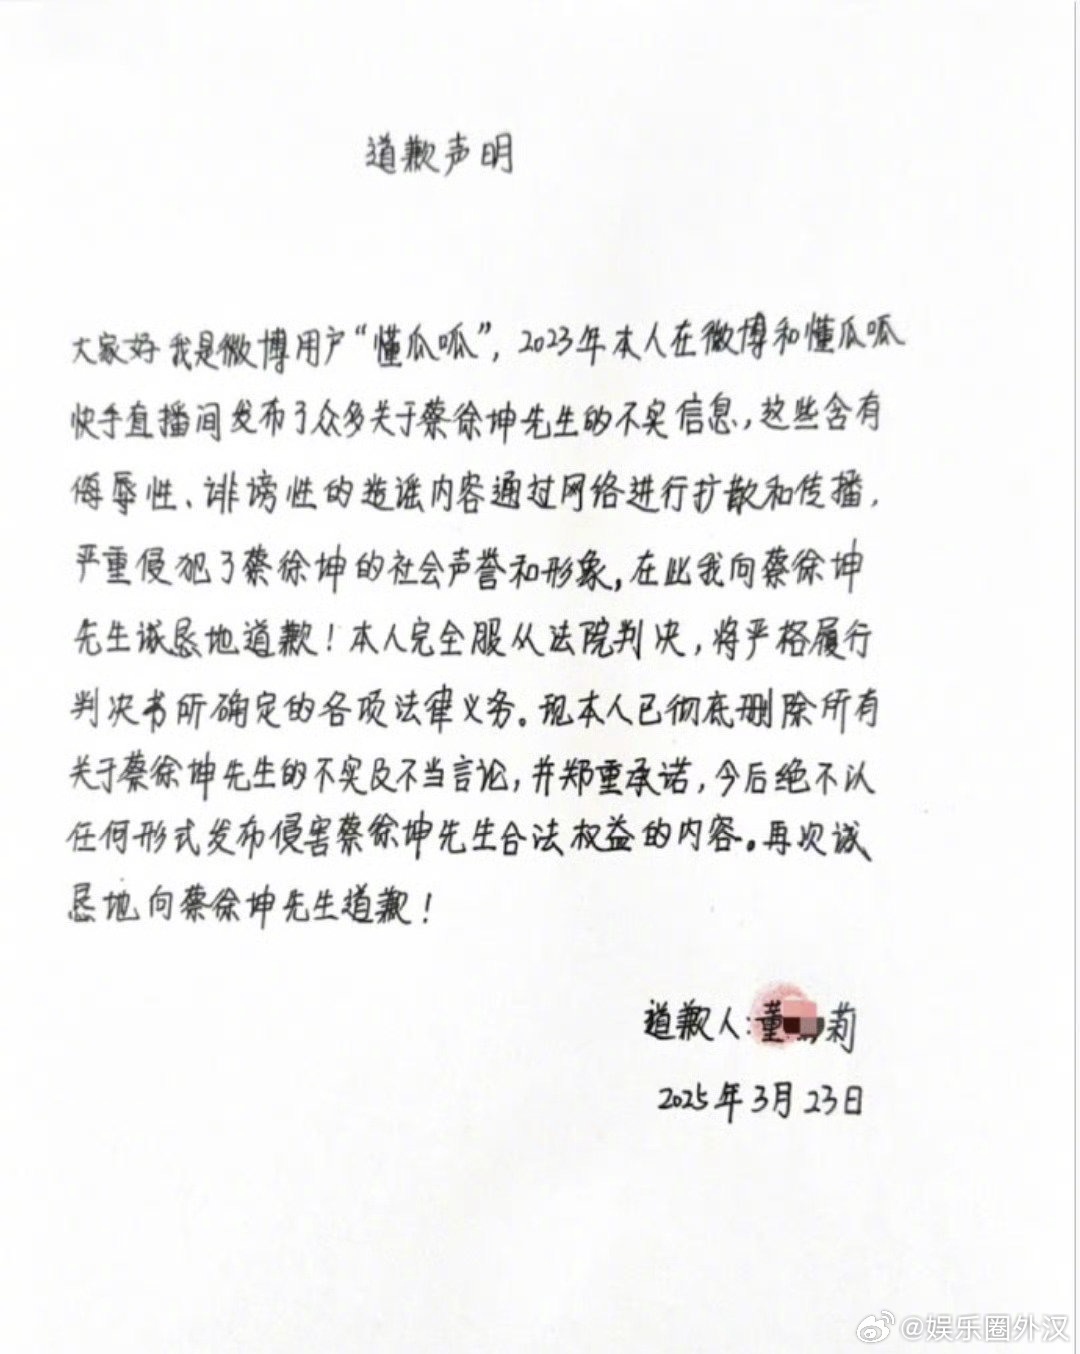 道歉声明
大家好我是微博用户“懂瓜呱”，2023年本人在微博和懂瓜呱
快手直播间发布了众多关于蔡徐坤先生的不实信息，这些含有
侮辱性、诽谤性的造谣内容通过网络进行扩散和传播，
严重侵犯了蔡徐坤的社会声誉和形象，在此我向蔡徐坤
先生诚恳地道歉！本人完全服从法院判决，将严格履行
判决书所确定的各项法律义务。现本人已彻底删除所有
关于蔡徐坤先生的不实及不当言论，并郑重承诺，今后绝不以
任何形式发布侵害蔡徐坤先生合法权益的内容。再次诚
恳地向蔡徐坤先生道歉！
道歉人：董 莉
2025年3月23日
@娱乐圈外汉